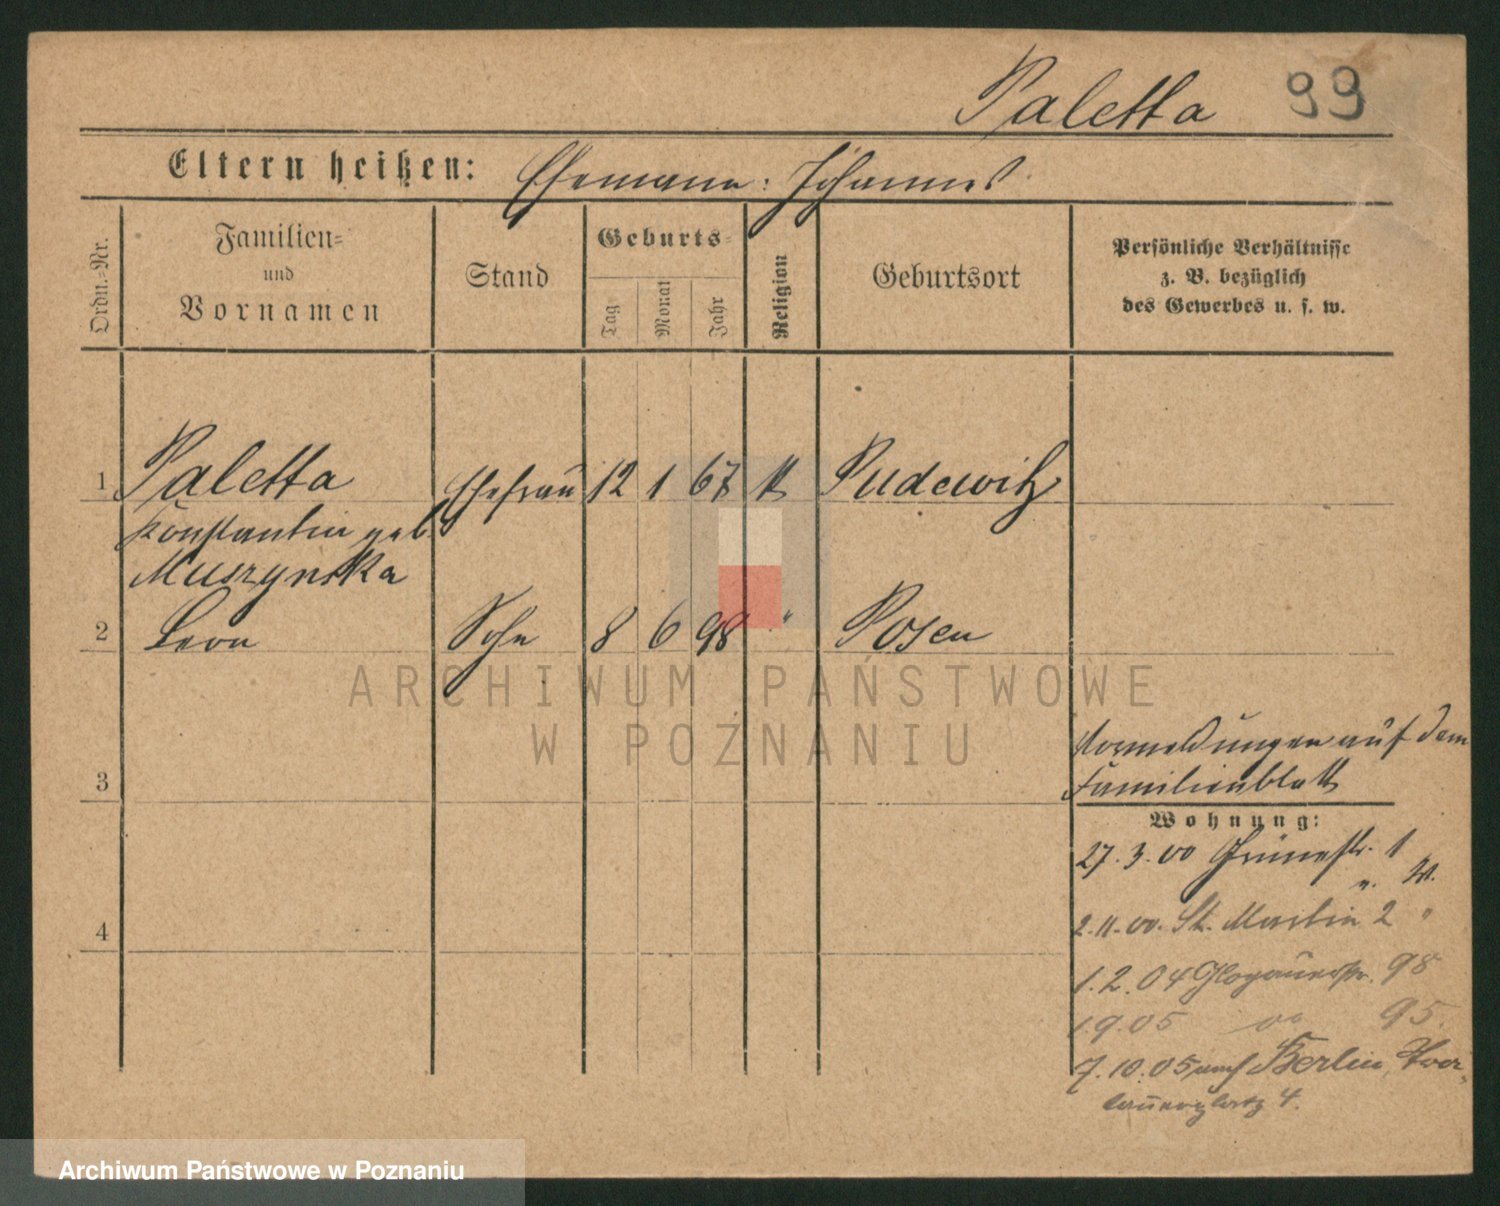 Paletta 99
Eltern heißen: Ehemann: Johannes
Ordn.-Nr.
Familien-
und
Vornamen
Stand
Geburts-
Tag
Monat
Jahr
Religion
Geburtsort
Persönliche Verhältnisse
z. B. bezüglich
des Gewerbes u. s. w.
1 Paletta Ehefrau 12 1 67 k Pudewitz
Konstantin geb
Muszynska
2 Leon Sohn 8 6 98 " Posen
ARCHIWUM PAŃSTWOWE
W POZNANIU
auf dem
3 Familienblatt
Wohnung:
27.3.00 Grünestr. 1
2.11.00. St. Martin 2 "
4
1.2.04 Glogauerstr. 98
1.9.05 " 95.
7.10.05 nach Berlin,
4.
Archiwum Państwowe w Poznaniu